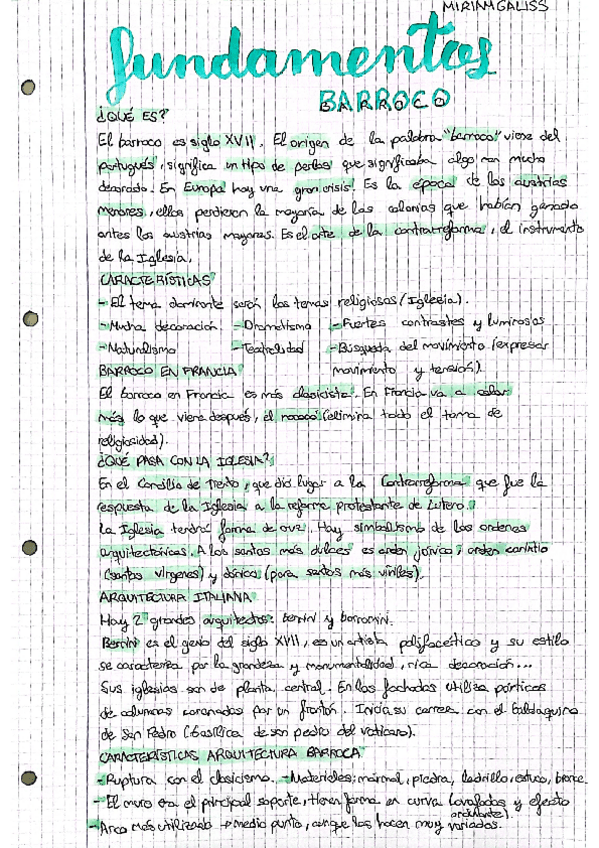 MIRIAMGALISS
fundamentos
BARROCO
¿QUÉ ES?
El barroco es siglo XVII. El origen de la palabra "barroco" viene del
portugués, significa un tipo de perlas que significaba algo con mucho
decorado. En Europa hay una gran crisis. Es la época de los austrias
menores, ellos perdieron la mayoría de las colonias que habían ganado
antes los austrias mayores. Es el arte de la contrarreforma, el instrumento
de la Iglesia.
CARACTERÍSTICAS
- El tema dominante serán los temas religiosos (Iglesia).
- Mucha decoración. - Dramatismo - Fuertes contrastes y luminosos
- Naturalismo - Teatralidad - Búsqueda del movimiento (expresar
movimiento y tensión).
BARROCO EN FRANCIA
El barroco en Francia es más clasicista. En Francia va a calar
más lo que viene después, el rococó (elimina todo el tema de
religiosidad).
¿QUÉ PASA CON LA IGLESIA?
En el Concilio de Trento, que dió lugar a la Contrarreforma que fue la
respuesta de la Iglesia a la reforma protestante de Lutero.
La Iglesia tendrá forma de cruz. Hay simbolismo de los ordenes
arquitectónicos. A los santos más dulces es orden jónico; orden corintio
(santas vírgenes) y dórico (para santos más viriles).
ARQUITECTURA ITALIANA
Hay 2 grandes arquitectos: bernini y borromini.
Bernini es el genio del siglo XVII, es un artista polifacético y su estilo
se caracteriza por la grandeza y monumentalidad, rica decoración...
Sus iglesias son de planta central. En las fachadas utiliza pórticos
de columnas coronadas por un frontón. Inicia su carrera con el Baldaquino
de San Pedro (basílica de san pedro del vaticano).
CARACTERÍSTICAS ARQUITECTURA BARROCA
- Ruptura con el clasicismo. - Materiales: mármol, piedra, ladrillo, estuco, bronce.
- El muro era el principal soporte, tienen forma en curva (ovaladas y efecto
ondulante).
- Arco más utilizado → medio punto, aunque los hacen muy variados.